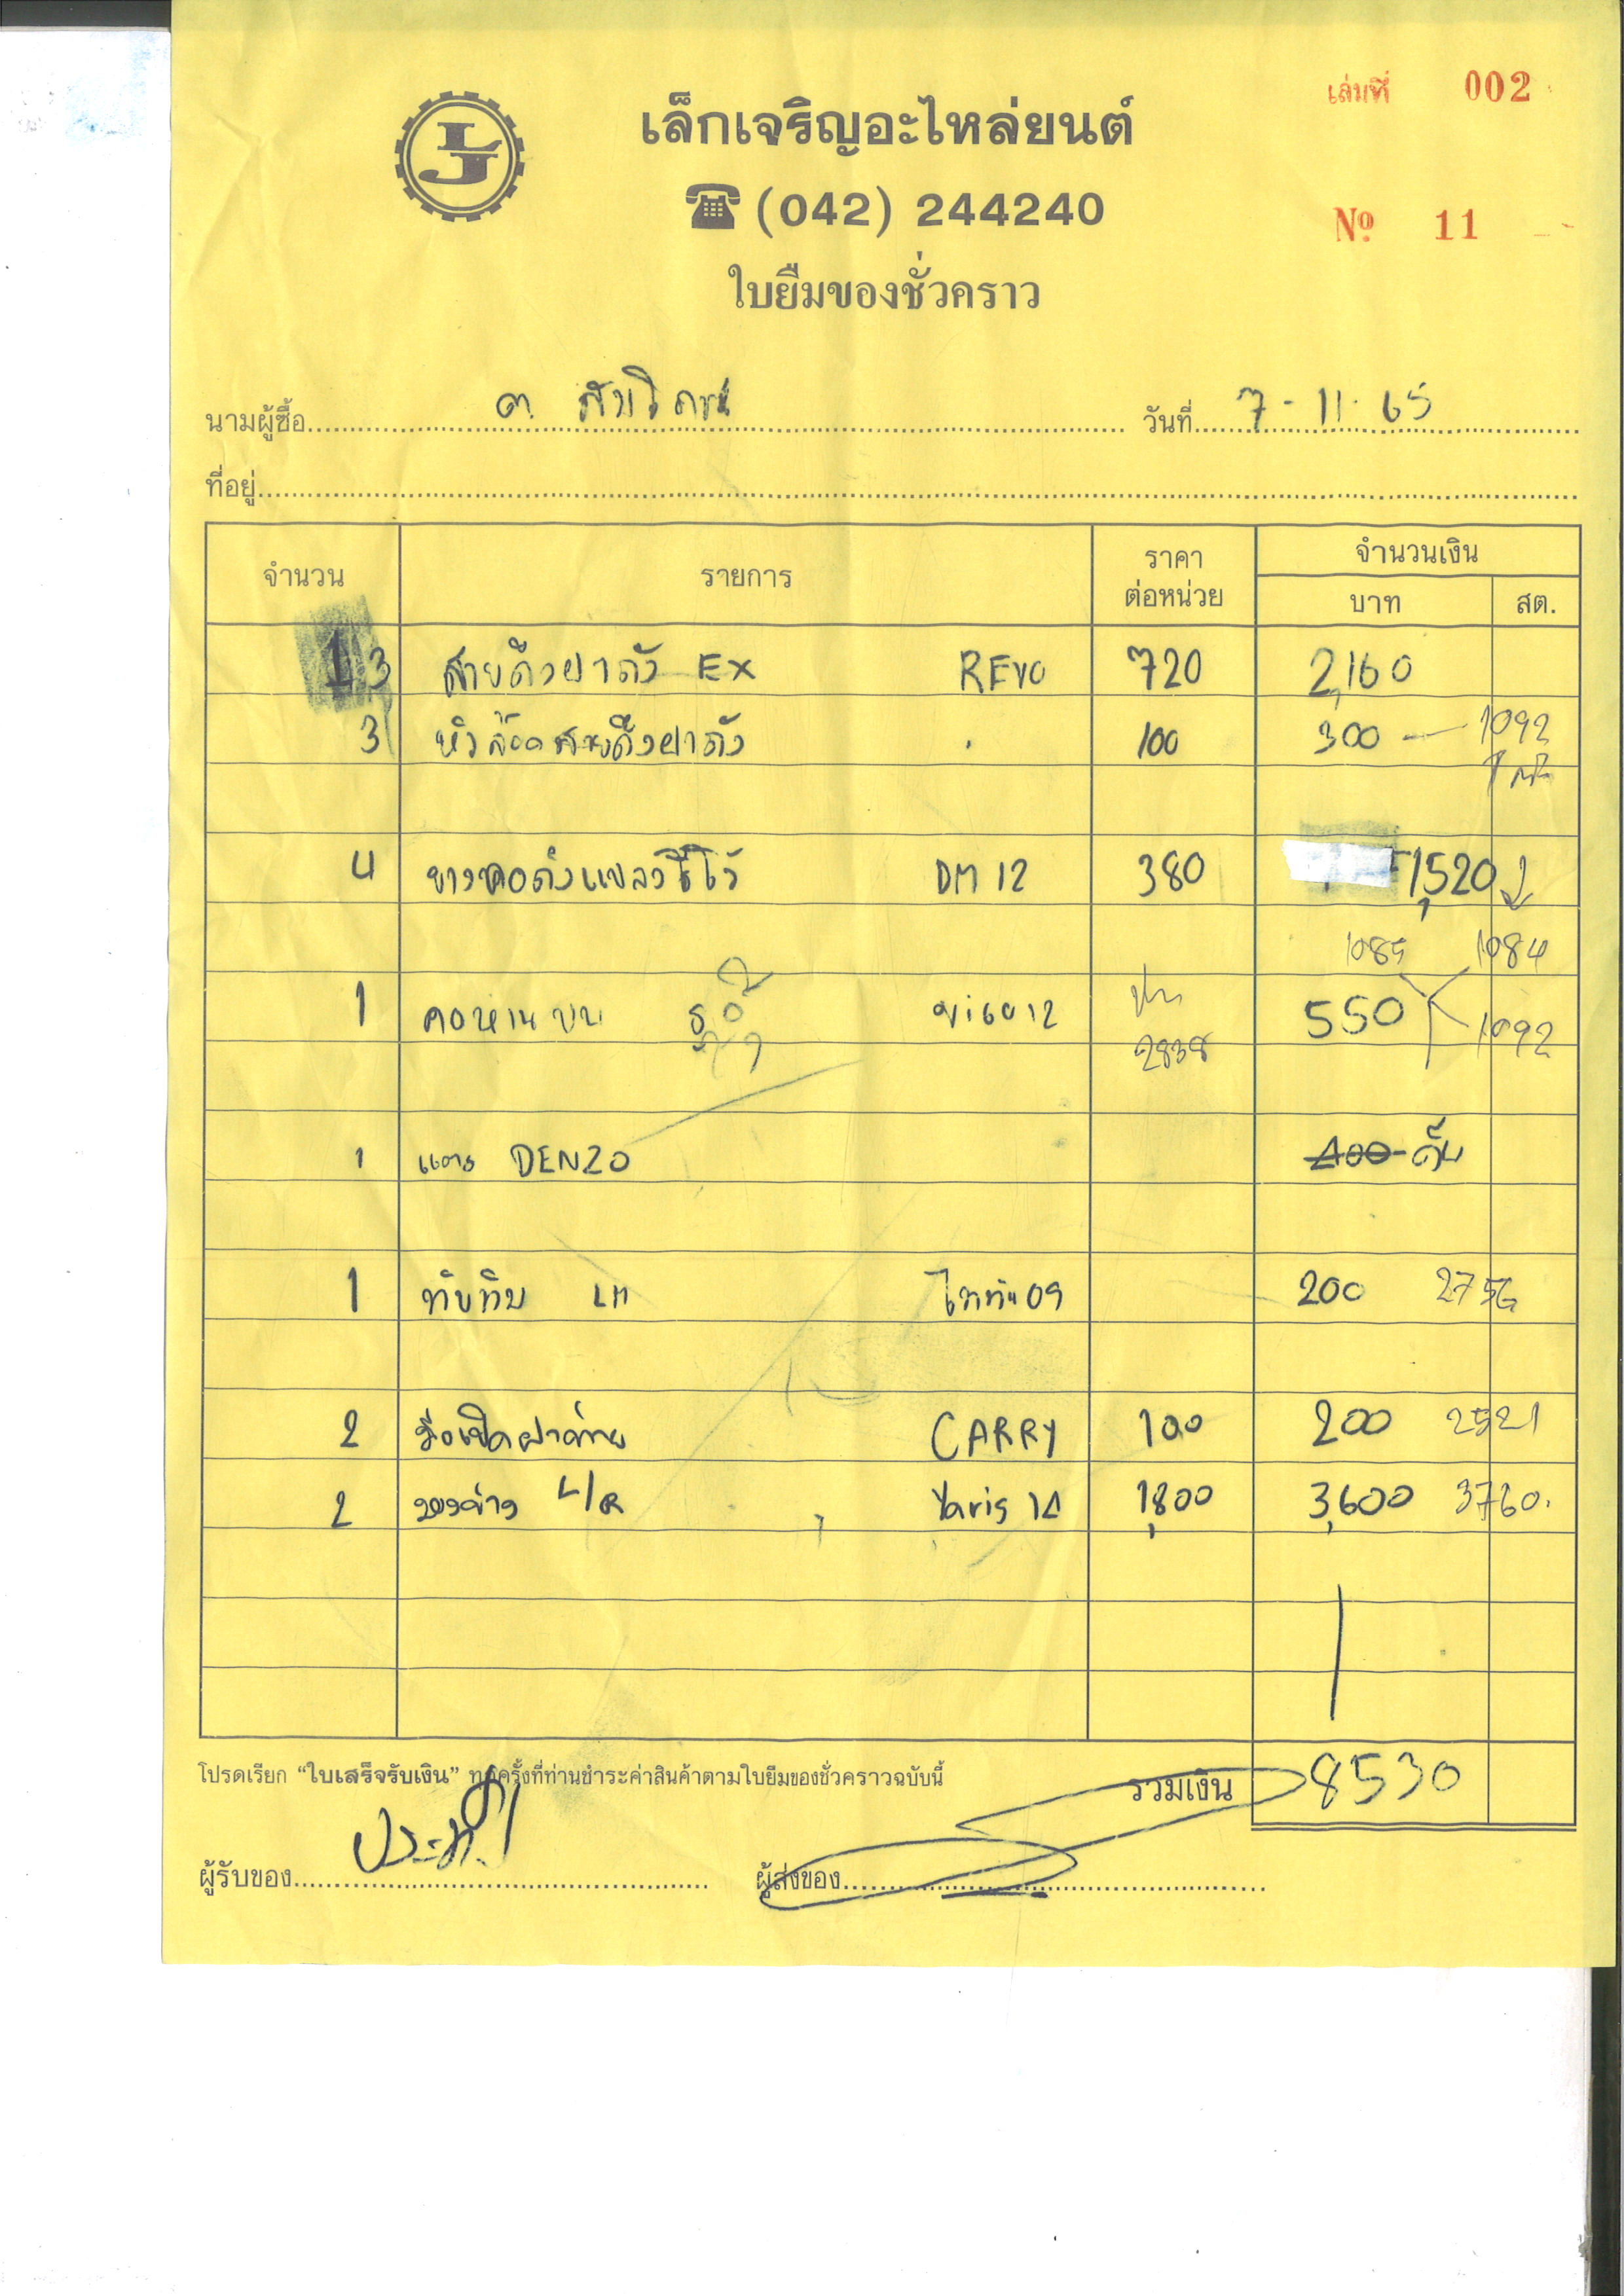 เล่มที่ 002
LJ
เล็กเจริญอะไหล่ยนต์
☎ (042) 244240
Nº 11
ใบยืมของชั่วคราว
นามผู้ซื้อ วันที่ 7-11-65
ที่อยู่
จำนวน รายการ ราคาต่อหน่วย จำนวนเงิน
บาท สต.
3 สายดึงฝาถัง EX REVO 720 2,160
3 หัวล็อคสายดึงฝาถัง 100 300 1092
4 ยางคอถัง DM 12 380 1,520
1085 1084
1 คอห่านบน vigo 12 550 1092
2838
1 แตร DENZO 400 คืน
1 ทับทิม LH ไททัน 09 200 2756
2 มือเปิดฝาท้าย CARRY 100 200 2521
2 L/R Yaris 14 1,800 3,600 3760
โปรดเรียก “ใบเสร็จรับเงิน” ทุกครั้งที่ท่านชำระค่าสินค้าตามใบยืมของชั่วคราวฉบับนี้
รวมเงิน 8530
ผู้รับของ ผู้ส่งของ